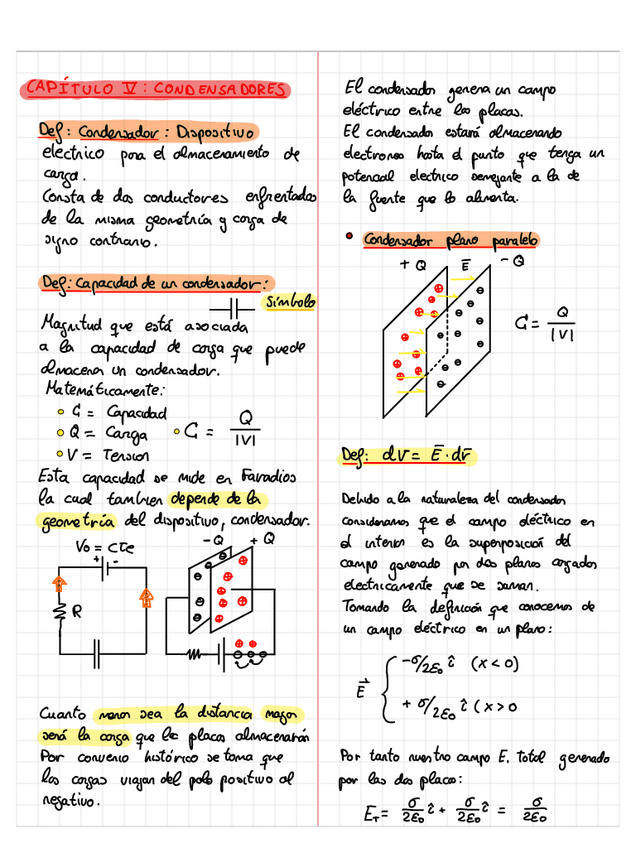 CAPÍTULO V: CONDENSADORES
Def: Condensador: Dispositivo
electrico para el almacenamiento de
carga.
Consta de dos conductores enfrentados
de la misma geometría y carga de
signo contrario.
Def: Capacidad de un condensador:
Símbolo
Magnitud que está asociada
a la capacidad de carga que puede
almacenar un condensador.
Matemáticamente:
C = Capacidad
Q = Carga
C = Q/|V|
V = Tension
Esta capacidad se mide en Faradios
la cual tambien depende de la
geometría del dispositivo, condensador.
V₀ = cte
+ -
R
-Q + Q
Cuanto menor sea la distancia mayor
será la carga que las placas almacenarán
Por convenio histórico se toma que
las cargas viajan del polo positivo al
negativo.
El condensador genera un campo
eléctrico entre las placas.
El condensado estará almacenando
electrones hasta el punto que tenga un
potencial electrico semejante a la de
la fuente que lo alimenta.
Condensador plano paralelo
+ Q E̅ - Q
C = Q/|V|
Def: dV = E̅·dr̅
Debido a la naturaleza del condensador
consideramos que el campo eléctrico en
el interior es la superposición del
campo generado por dos planos cargados
electricamente que se suman.
Tomando la definición que conocemos de
un campo eléctrico en un plano:
E⃗ { -σ/2ε₀ î (x < 0)
+ σ/2ε₀ î (x > 0
Por tanto nuestro campo E. Total generado
por las dos placas:
E_T = σ/2ε₀ î + σ/2ε₀ î = σ/2ε₀